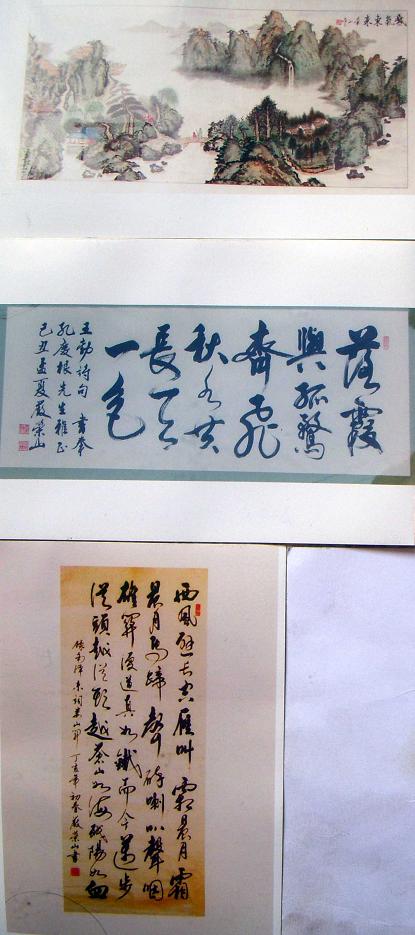 紫氣東來
落霞
與孤鶩
齊飛
秋水共
長天
一色
王勃詩句 書奉
孔慶根先生雅正
己丑孟夏嚴榮山
西風烈長空雁叫霜晨月霜
晨月馬蹄聲碎喇叭聲咽
雄關漫道真如鐵而今邁步
從頭越從頭越蒼山如海殘陽如血
錄毛澤東詞婁山關 丁亥年初春嚴榮山書